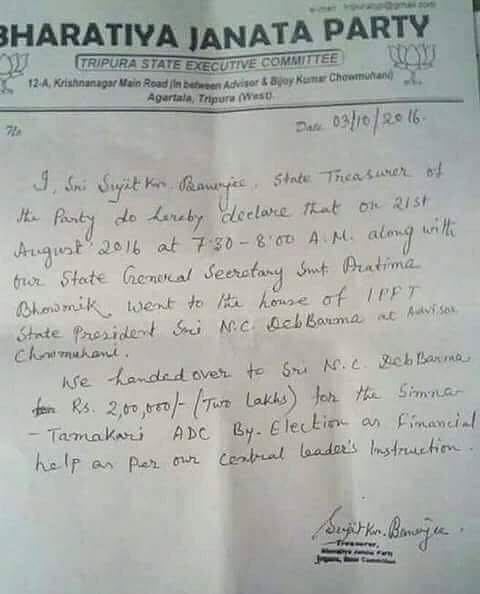 e-mail : tripurabjp@gmail.com
BHARATIYA JANATA PARTY
TRIPURA STATE EXECUTIVE COMMITTEE
12-A, Krishnanagar Main Road (In between Advisor & Bijoy Kumar Chowmuhani)
Agartala, Tripura (West).
No
Date 03/10/2016.
I, Sri Sujit Kr. Banerjee, State Treasurer of
the Party do hereby declare that on 21st
August' 2016 at 7:30 - 8:00 A.M. along with
our State General Secretary Smt. Pratima
Bhowmik, went to the house of IPFT
State President Sri N.C. DebBarma at Advisor
Chowmuhani.
We handed over to Sri N.C. DebBarma
Rs. 2,00,000/- (Two Lakhs) for the Simna
- Tamakari ADC By-Election as Financial
help as per our central leader's Instruction.
Sujit Kr. Banerjee.
Treasurer,
Bharatiya Janata Party
Tripura, State Committee